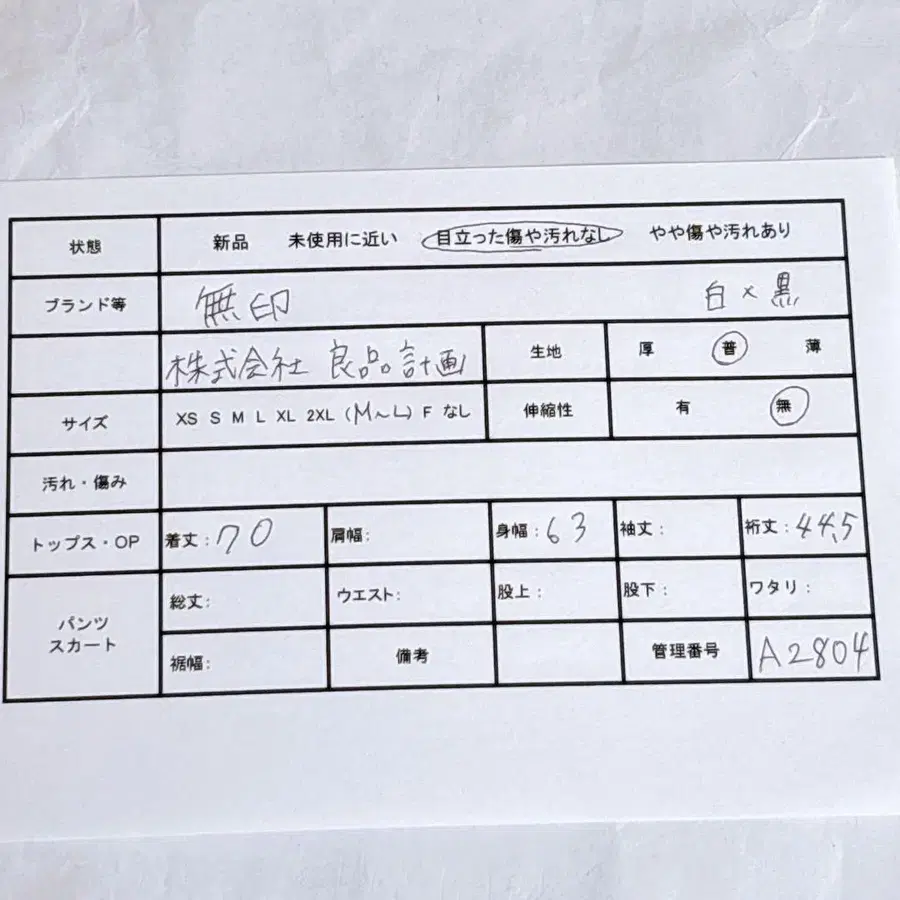 状態 新品 未使用に近い 目立った傷や汚れなし やや傷や汚れあり
ブランド等 無印 白×黒
株式会社 良品計画 生地 厚 普 薄
サイズ XS S M L XL 2XL (M〜L) F なし 伸縮性 有 無
汚れ・傷み
トップス・OP 着丈:70 肩幅: 身幅:63 袖丈: 裄丈:44.5
パンツ スカート 総丈: ウエスト: 股上: 股下: ワタリ:
裾幅: 備考 管理番号 A2804